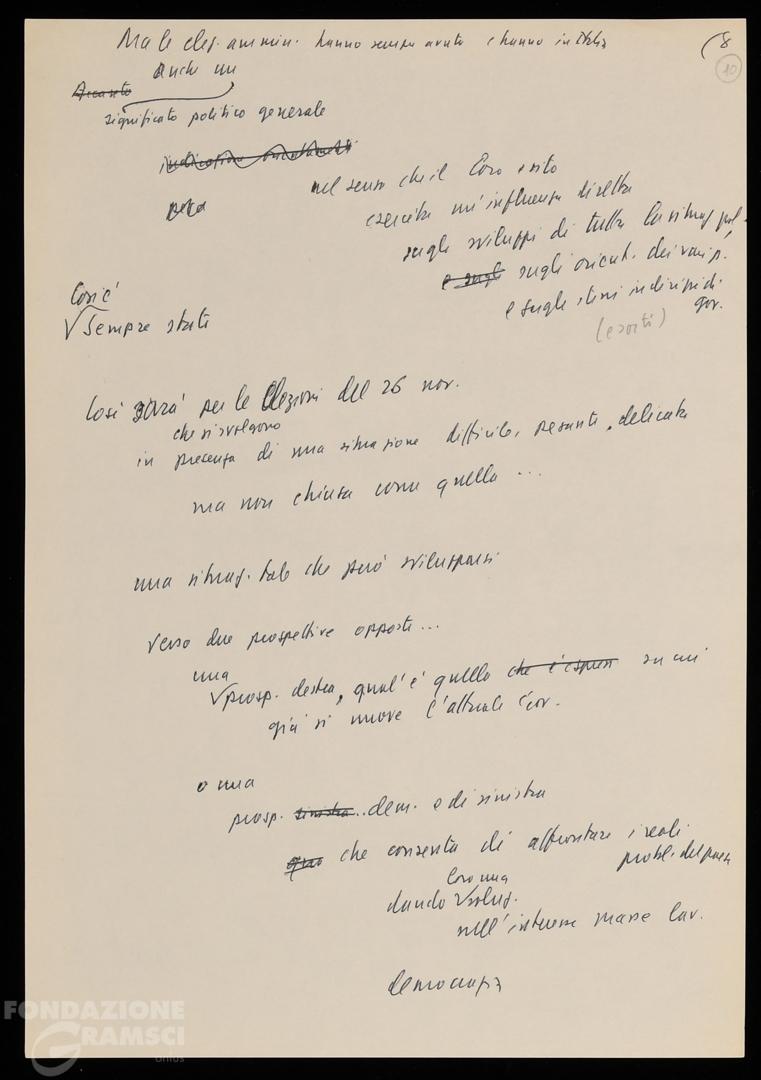 Ma le elez. ammin. hanno sempre avuto e hanno in Italia
(8
10
Anche un
Accanto
significato politico generale
nel senso che il loro esito
esercita un'influenza diretta
sugli sviluppi di tutta la situaz. pol.
e sugli sugli orient. dei vari p.
e sugli stessi indirizzi di
gov.
(e sorti)
Così è
√ Sempre stato
Così sarà per le Elezioni del 26 nov.
che si svolgono
in presenza di una situazione difficile, pesante, delicata
ma non chiusa come quella ...
una situaz. tale che può svilupparsi
verso due prospettive opposte...
una
√ prosp. destra, qual'è quella che è espres su cui
già si muove l'attuale Gov.
o una
prosp. sinistra.. dem. e di sinistra
che consenta di affrontare i reali
probl. del paese
loro una
dando √ soluz.
nell'interesse masse lav.
democrazia
FONDAZIONE
GRAMSCI
onlus